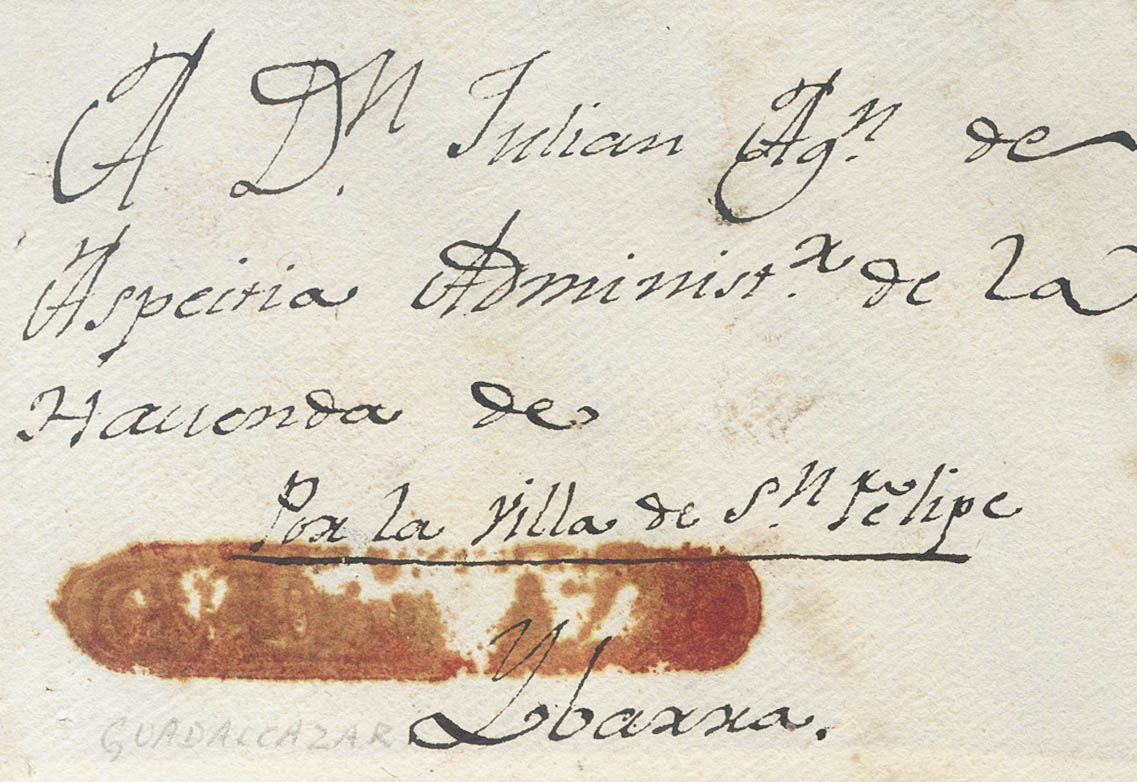 A D.n Julian Ag.n de
Aspeitia Administ.r de la
Hacienda de
Por la Villa de S.n Felipe
Ybarra.
GUADALCAZAR